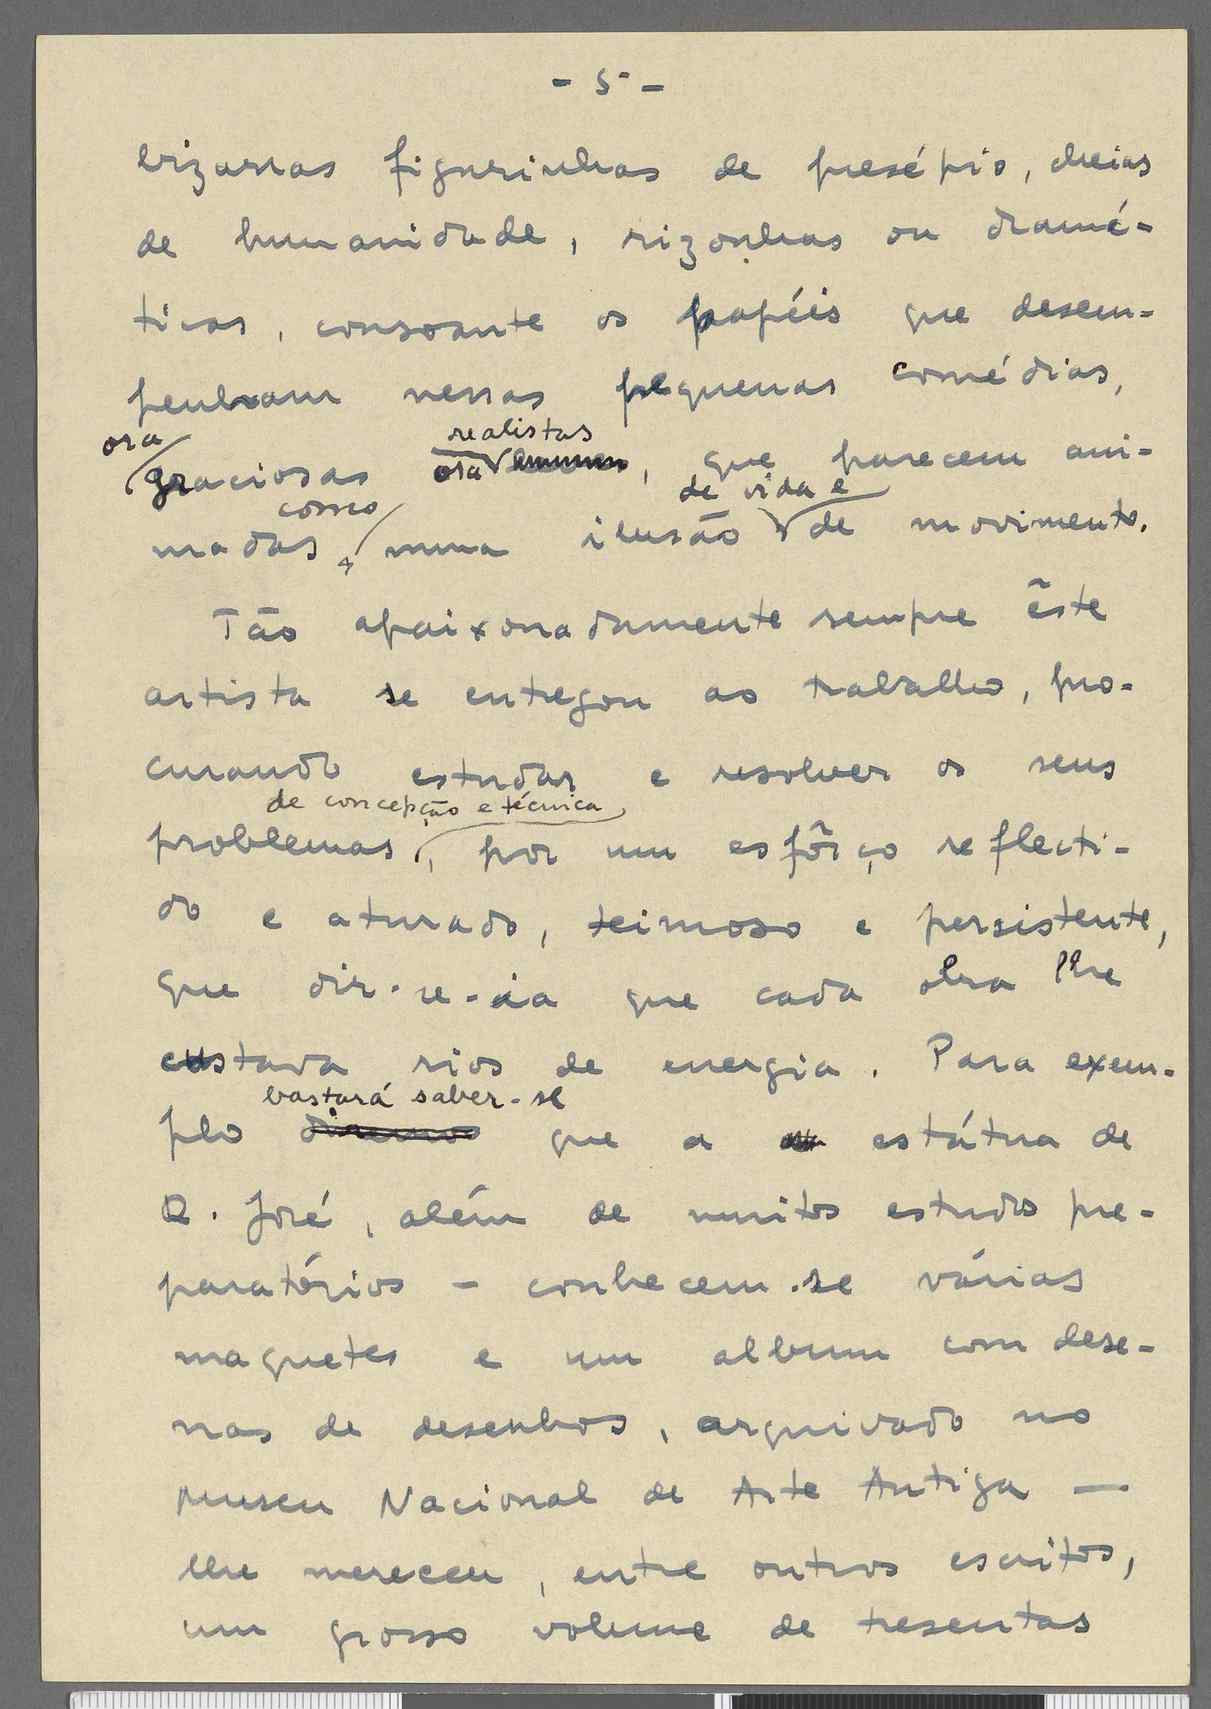 - 5 -
bizarras figurinhas de presépio, cheias
de humanidade, rizonhas ou dramá-
ticas, consoante os papéis que desem-
penham nessas pequenas comédias,
ora graciosas ora realistas, que parecem ani-
madas, como numa ilusão de vida e de movimento.
Tão apaixonadamente sempre êste
artista se entregou ao trabalho, pro-
curando estudar e resolver os seus
problemas de concepção e técnica, por um esfôrço reflecti-
do e aturado, teimoso e persistente,
que dir-se-ia que cada obra lhe
custava rios de energia. Para exem-
plo bastará saber-se que a estátua de
D. José, além de muitos estudos pre-
paratórios - conhecem-se várias
maquetes e um album com deze-
nas de desenhos, arquivado no
Museu Nacional de Arte Antiga —
lhe mereceu, entre outros escritos,
um grosso volume de tresentas